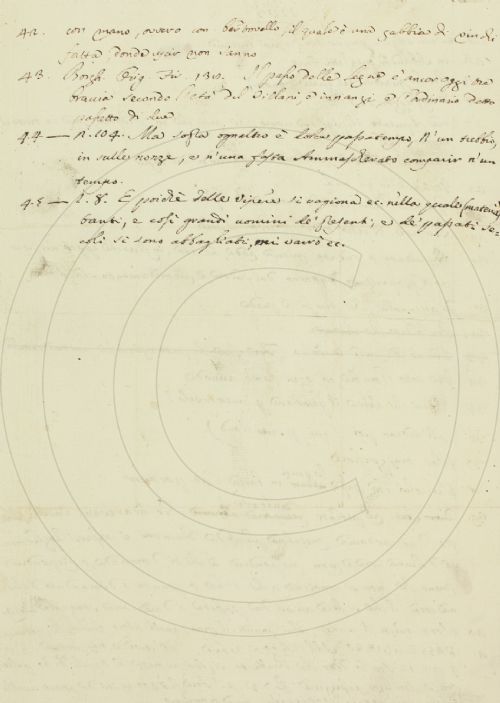 42. con mano, ovvero con bertovello, il quale è una gabbia di vinchi
fatta donde uscir non sanno
43. Borgh. Orig. Fir. 130. Il passo delle legne è ancor oggi tre
braccia secondo l'età del Villani e innanzi, è l'ordinario detto
passetto di due
44 — R. 104. Ma sopra ognaltro è dolce passatempo, N'un trebbio,
in sulle nozze, e n'una festa Ammascherato comparir n'un
tempo.
45 — R. 8. E poichè delle Vipere si ragiona ec. nella quale (materia
tanti, e così grandi uomini de' presenti, e de' passati se=
coli si sono abbagliati, mi varrò ec.